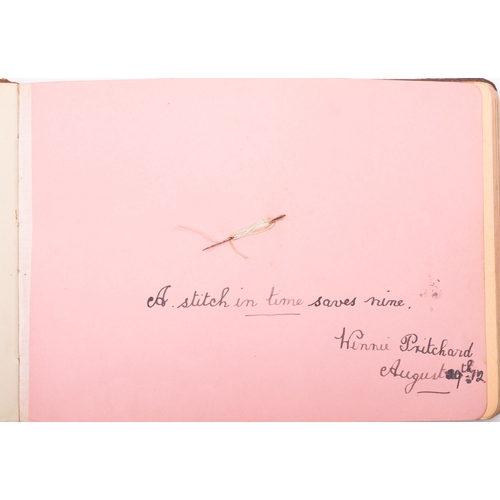 A. stitch in time saves nine.
Winnie Pritchard
August 29th-12